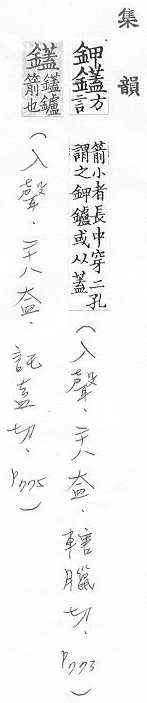 集韻
鉀鑉方言箭小者長中穿二孔謂之鉀鑪或从蓋(入聲、二十八盍、轄臘切、P773)
鑉鑉鑪箭也(入聲、二十八盍、託盍切、P775)